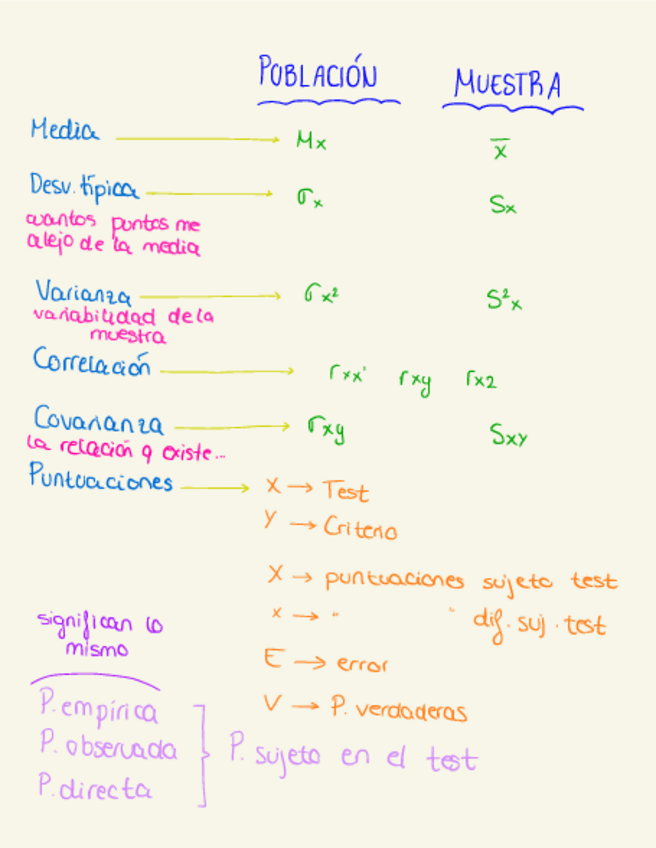 POBLACIÓN MUESTRA
Media → Mx x̅
Desv. típica → σx Sx
cuantos puntos me
alejo de la media
Varianza → σx² S²x
variabilidad de la
muestra
Correlación → rxx' rxy rx2
Covarianza → σxy Sxy
la relación q existe...
Puntuaciones → X → Test
Y → Criterio
X → puntuaciones sujeto test
x → " " dif. suj. test
significan lo
mismo
E → error
V → P. verdaderas
P. empírica
P. observada } P. sujeto en el test
P. directa